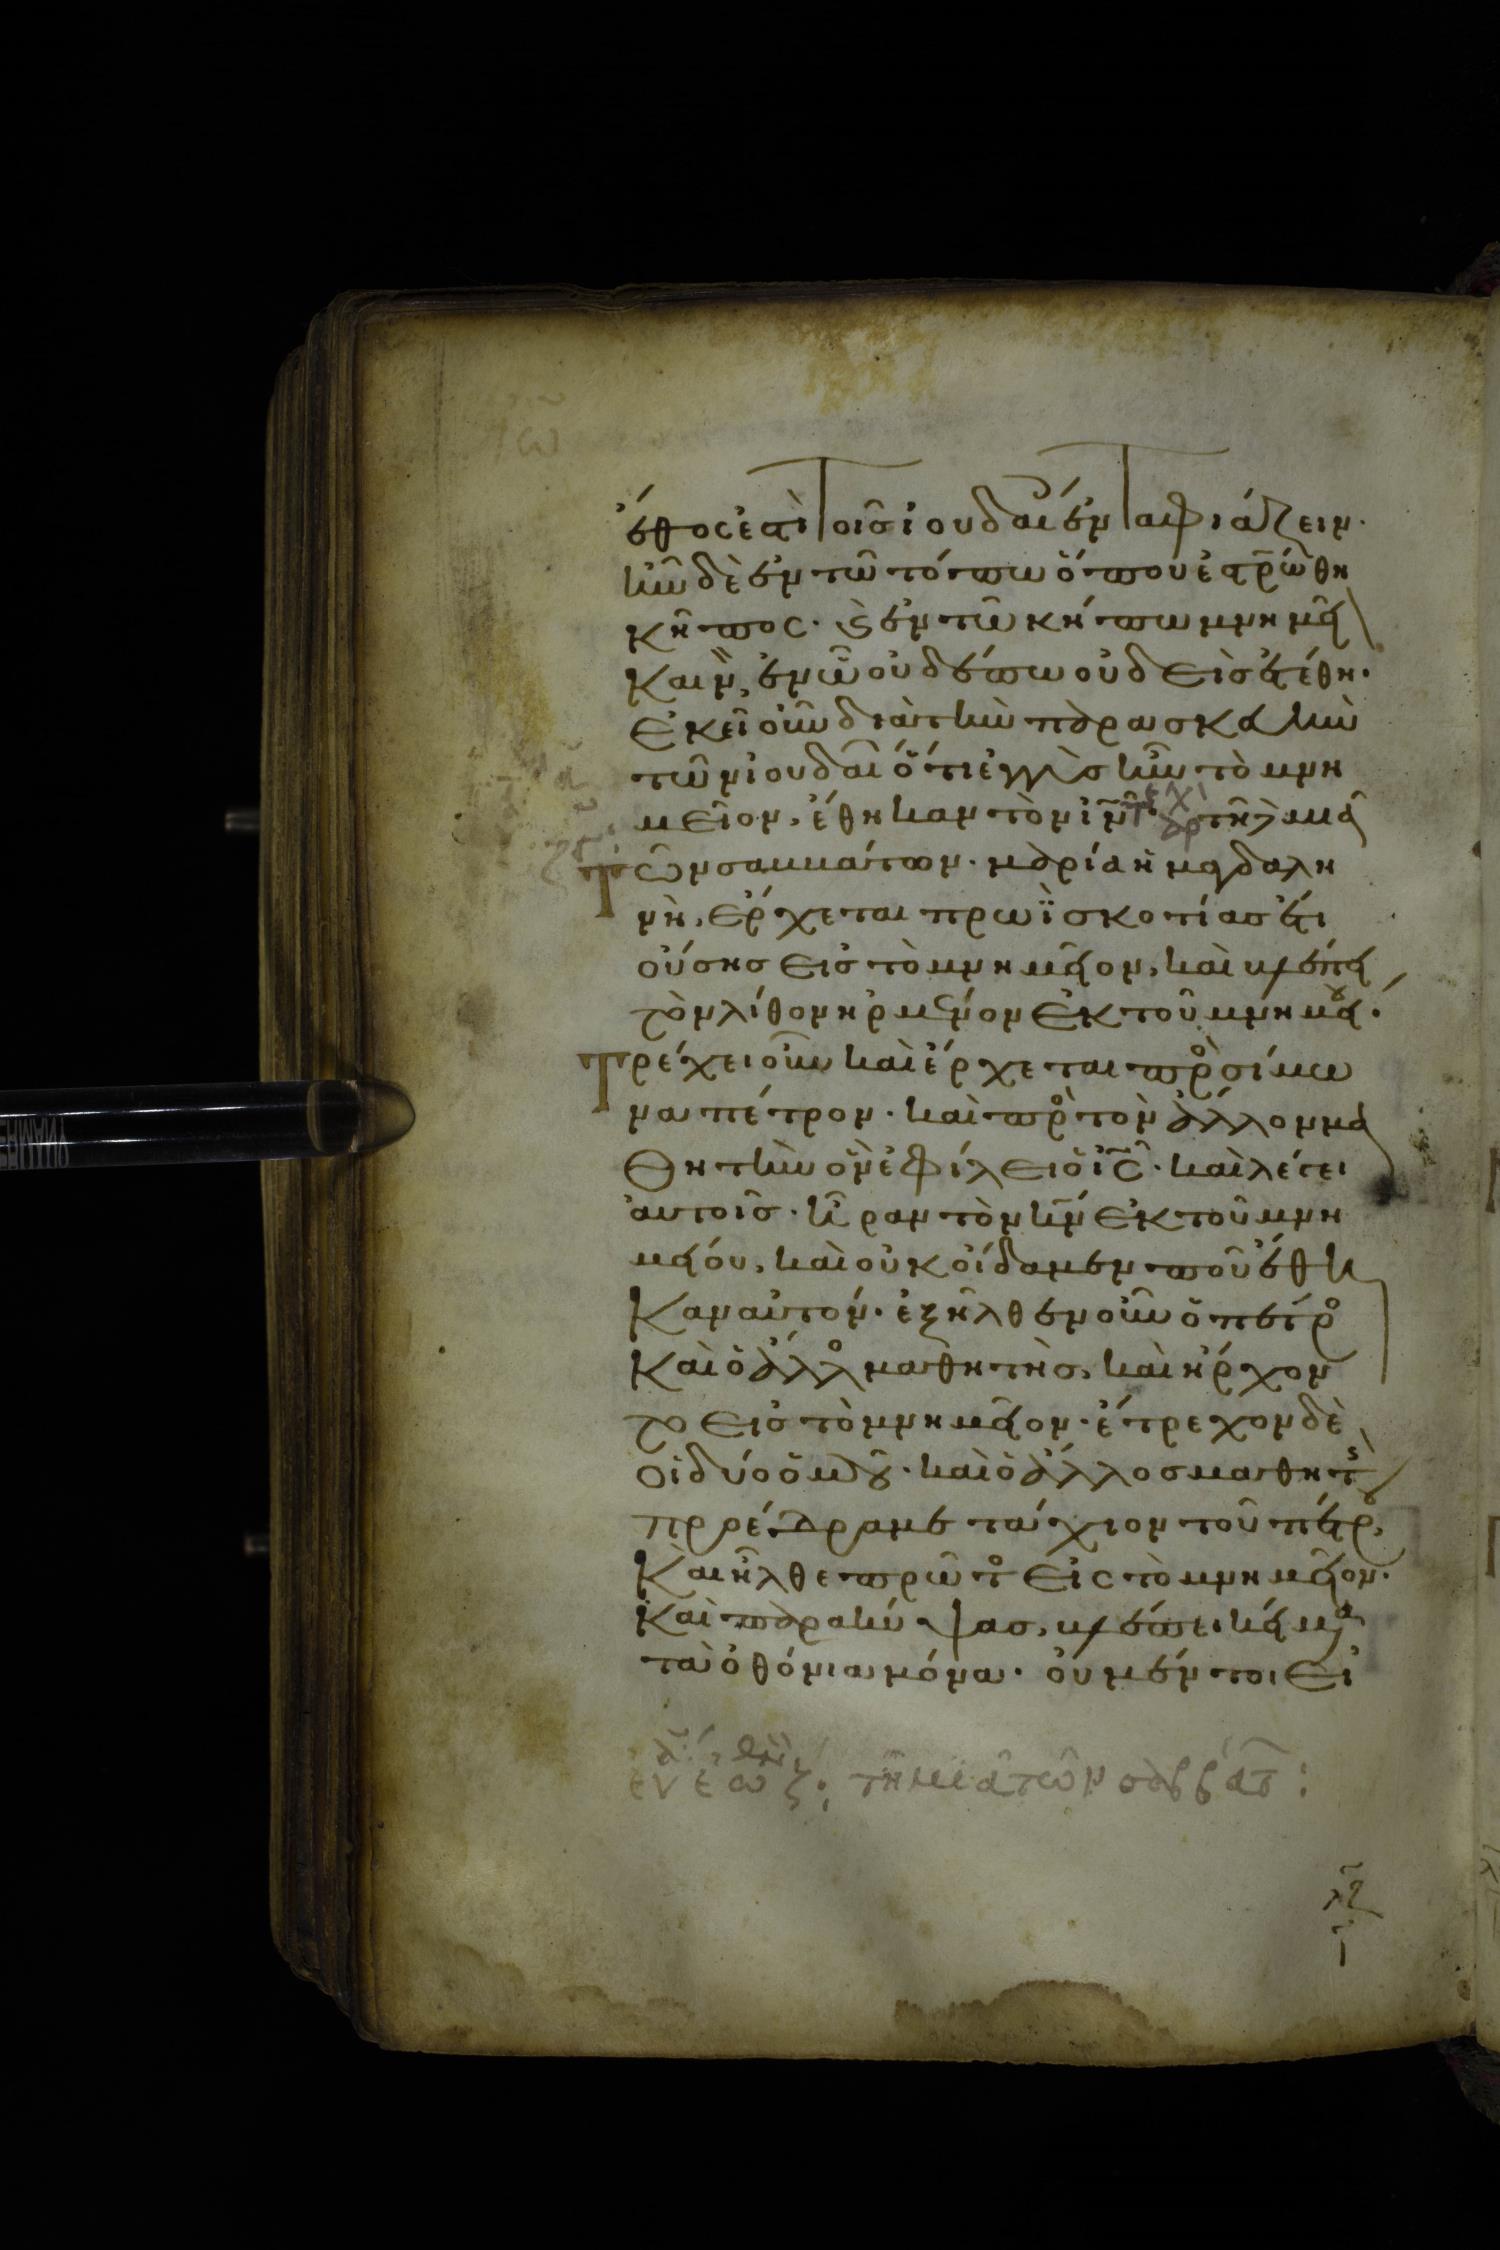 ἔθος ἐστὶ τοῖς ἰουδαίοις ἐνταφιάζειν·
ἦν δὲ ἐν τῶ τόπω ὅπου ἐστρώθη
κῆπος· καὶ ἐν τῶ κήπω μνημεῖον
καινὸν, ἐν ὧ οὐδέπω οὐδεὶς ἐτέθη·
ἐκεῖ οὖν διὰ τὴν παρασκευὴν
τῶν ἰουδαίων ὅτι ἐγγὺς ἦν τὸ μνη
μεῖον, ἔθηκαν τὸν ἰν· τῆ μιᾶ
τῶν σαββάτων· μαρία ἡ μαγδαλη
νὴ, ἔρχεται πρωῒ σκοτίας ἔτι
οὔσης εἰς τὸ μνημεῖον, καὶ βλέπει
τὸν λίθον ἠρμένον ἐκ τοῦ μνημείου·
τρέχει οὖν καὶ ἔρχεται πρὸς σίμω
να πέτρον· καὶ πρὸς τὸν ἄλλον μα
θητὴν ὃν ἐφίλει ὁ ις· καὶ λέγει
αὐτοῖς· ἦραν τὸν κν ἐκ τοῦ μνη
μείου, καὶ οὐκ οἴδαμεν ποῦ ἔθη
καν αὐτόν· ἐξῆλθεν οὖν ὁ πέτρος
καὶ ὁ ἄλλος μαθητὴς, καὶ ἤρχον
το εἰς τὸ μνημεῖον· ἔτρεχον δὲ
οἱ δύο ὁμοῦ· καὶ ὁ ἄλλος μαθητὴς
προέδραμε τάχιον τοῦ πέτρου,
καὶ ἦλθε πρῶτος εἰς τὸ μνημεῖον·
καὶ παρακύψας, βλέπει κείμενα
τὰ ὀθόνια μόνα· οὐ μέντοι εἰ
τῆ μιᾶ τῶν σαββάτ :